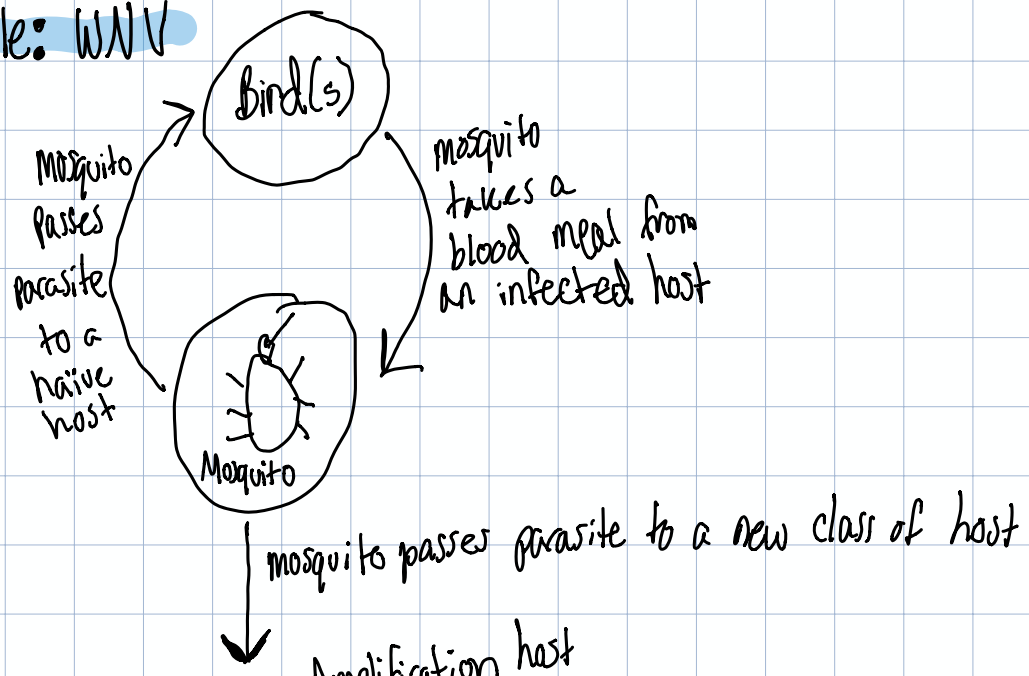 le: WNV
Bird(s)
Mosquito
passes
parasite
to a
naïve
host
mosquito
takes a
blood meal from
an infected host
Mosquito
mosquito passes parasite to a new class of host
Amplification host